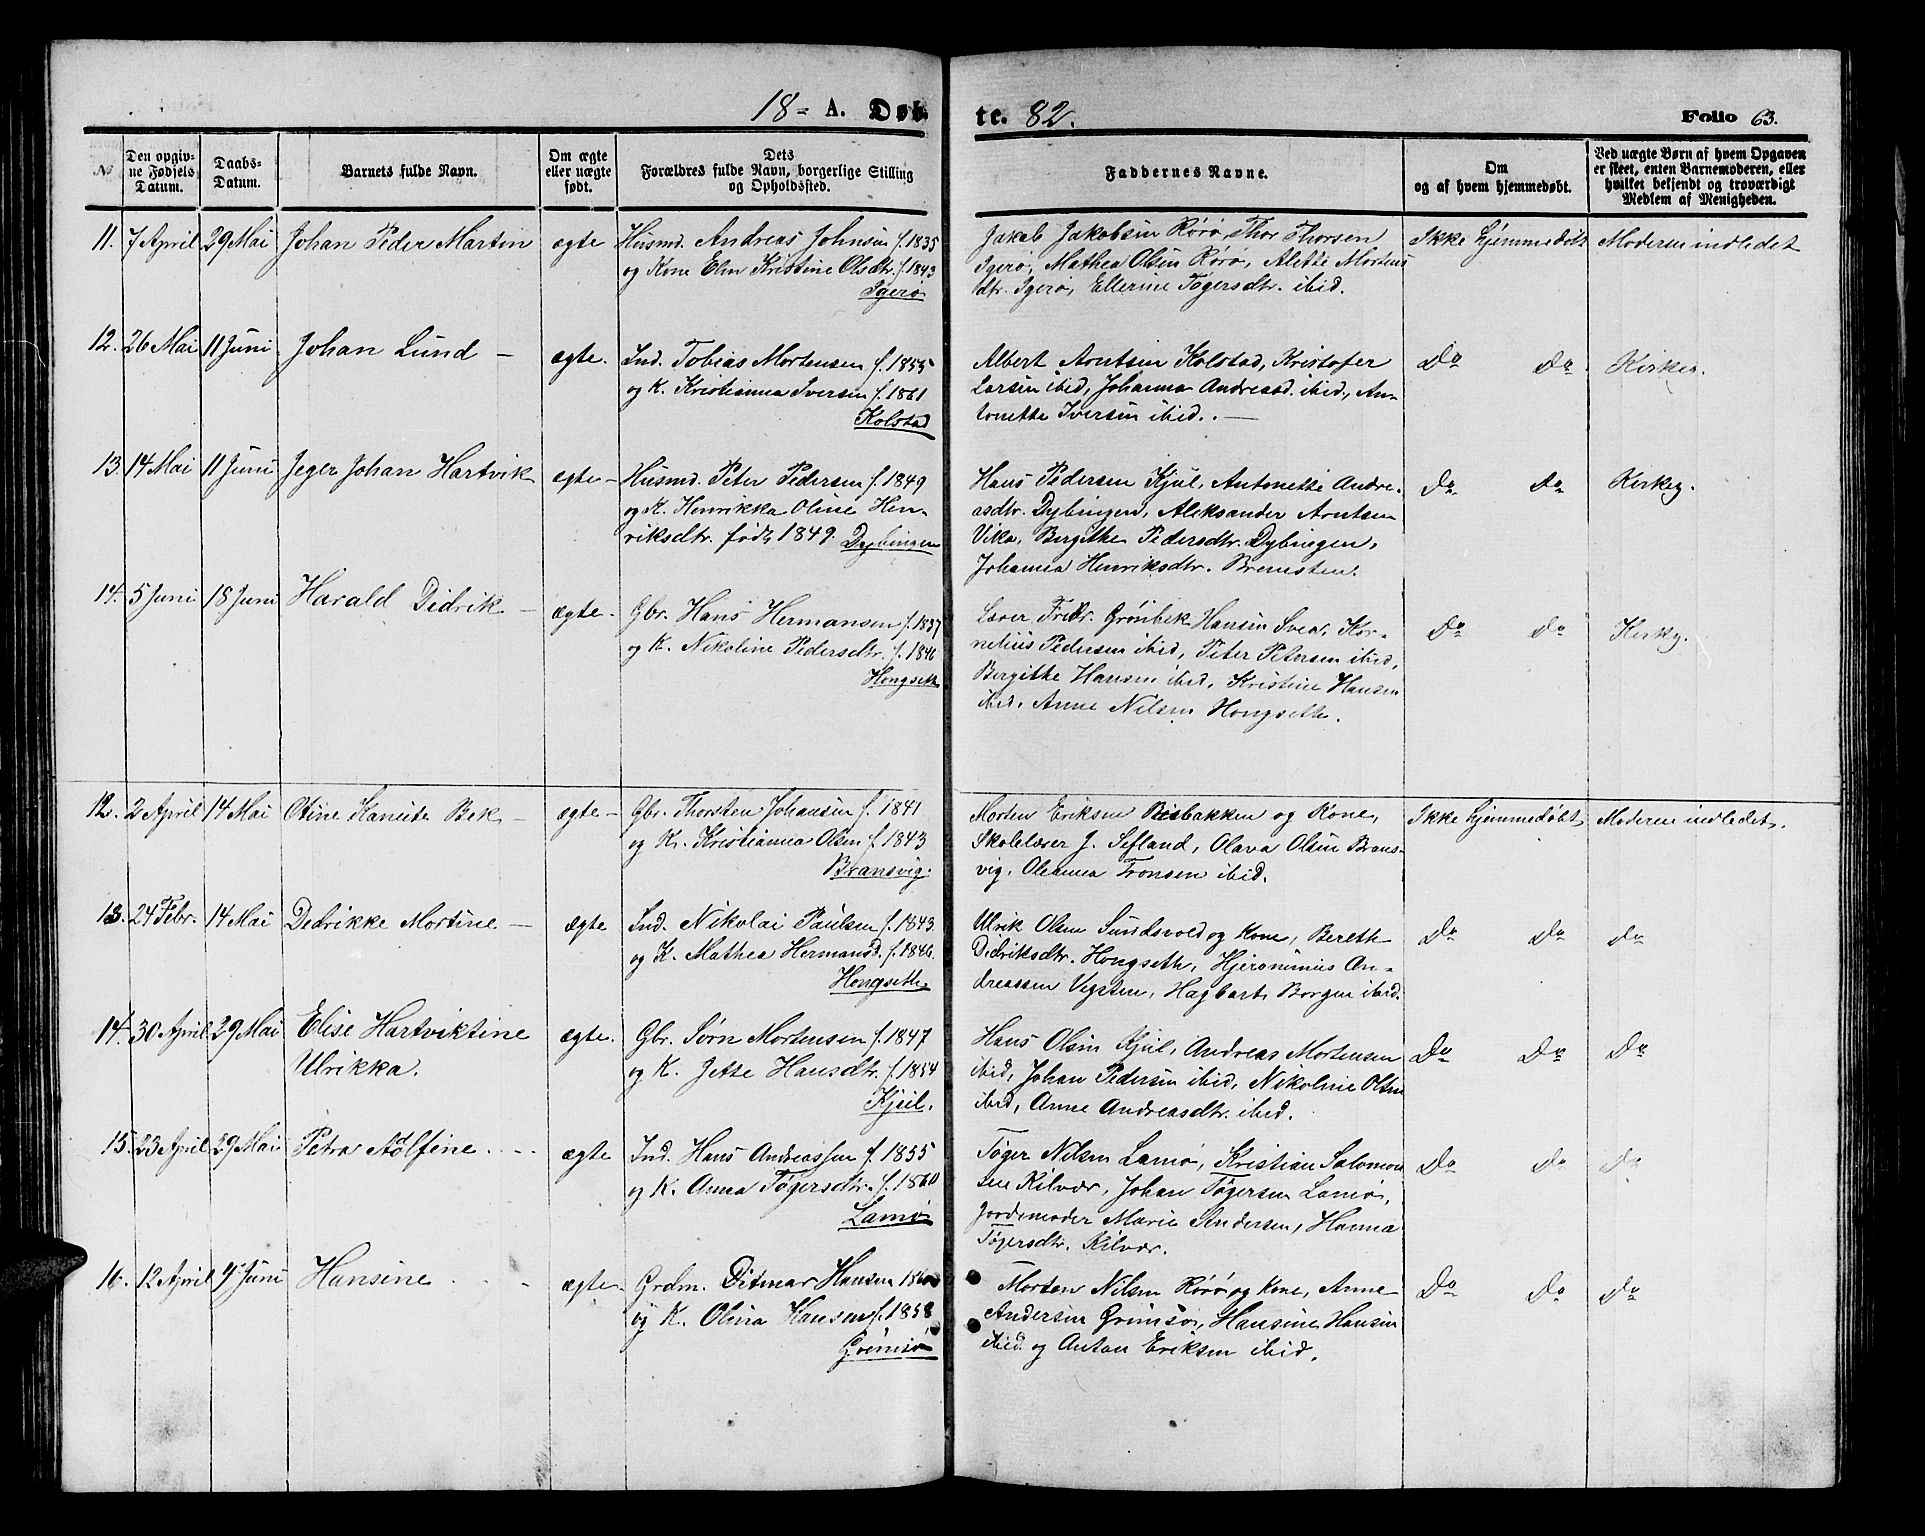 18- A. Døb- te. 82. Folio 63.
No Den opgiv-
ne Fødsels
Datum. Daabs-
Datum. Barnets fulde Navn. Om ægte
eller uægte
født. Dets
Forældres fulde Navn, borgerlige Stilling
og Opholdssted.
Faddernes Navne. Om
og af hvem hjemmedøbt. Ved uægte Børn af hvem Opgaven
er skeet, enten Barnemoderen, eller
hvilket bekjendt og troværdigt
Medlem af Menigheden.
11. 7 April 29 Mai Johan Peder Martin ægte Husmd. Andreas Johnsen f. 1835
og Kone Elen Kristine Olsdtr. f. 1843
Igerø
Jakob Jakobsen Rørø, Thor Thorsen
Igerø, Mathea Olsen Rørø, Alette Mortens
dtr. Igerø, Ellerine Tøgersdtr. ibid.
Ikke hjemmedøbt Moderen indledet
12. 26 Mai 11 Juni Johan Lund – ægte. Ind. Tobias Mortensen f. 1855
og K. Kristianna Iversen f. 1861
Kolstad
Albert Arntsen Kolstad, Kristofer
Larsen ibid, Johanna Andreasd. ibid., An-
tonette Iversen ibid. –
Do Do Kirkeg.
13. 14 Mai 11 Juni Jeger Johan Hartvik ægte – Husmd. Peter Pedersen f. 1849
og K. Henrikka Oline Hen-
riksdtr. født 1849. Dybingen
Hans Pedersen Kjul, Antonette Andre-
asdtr. Dybingen, Aleksander Arntsen
Vika, Bergithe Pedersdtr. Dybingen,
Johanna Henriksdtr. Bremsten.
Do Do Kirkeg.
14. 5 Juni 18 Juni Harald Didrik – ægte – Gbr. Hans Hermansen f. 1837
og K. Nikoline Pedersdtr. f. 1846
Hongseth
Lærer Fredr. Grönbek Hansen Svea, Kor-
nelius Pedersen ibid, Peter Petersen ibid,
Bergithe Hansen ibid, Kristine Hansen
ibid, Anne Nilsen Hongseth.
Do Do Kirkeg.
12. 2 April 14 Mai Otine Kanute Bek – ægte – Gbr. Thorsten Johansen f. 1841
og K. Kristianna Olsen f. 1843
Bransvig.
Morten Eriksen Risbakken og Kone,
Skolelærer J. Sefland, Olava Olsen Brans-
vig, Oleanna Tronsen ibid.
Ikke hjemmedøbt Moderen indledet.
13. 24 Febr. 14 Mai Didrikke Mortine – ægte Ind. Nikolai Paulsen f. 1843.
og K. Mathea Hermansd. f. 1846.
Hongseth.
Ulrik Olsen Sundsvold og Kone, Bereth
Didriksdtr. Hongseth, Hjeronimus An-
dreassen Vegsten, Hagbart Borgen ibid.
Do Do Do
14. 30 April 29 Mai Elise Hartviktine
Ulrikka. ægte. Gbr. Sørn Mortensen f. 1847
og K. Jette Hansdtr. f. 1854
Kjul.
Hans Olsen Kjul, Andreas Mortensen
ibid, Johan Pedersen ibid, Nikoline Olsen
ibid, Anne Andreasdtr. ibid.
Do Do Do
15. 23 April 29 Mai Petra Adlfine ægte Ind. Hans Andreassen f. 1855
og K. Anna Tøgersdtr. f. 1860
Lamø
Tøger Nilsen Lamø, Kristian Salomon
sen Kilvær, Johan Tøgersen Lamø,
Jordemoder Marie Andersen, Hanna
Tøgersdtr. Kilvær.
Do Do Do
16. 12 April 4 Juni Hansine ægte – Grdm. Ditmar Hansen
og K. Olina Hansen f. 1858
Grimsø
Morten Nilsen Rørø og Kone, Anne
Andersen Grimsø, Hansine Hansen
ibid. og Anton Eriksen ibid.
Do Do Do